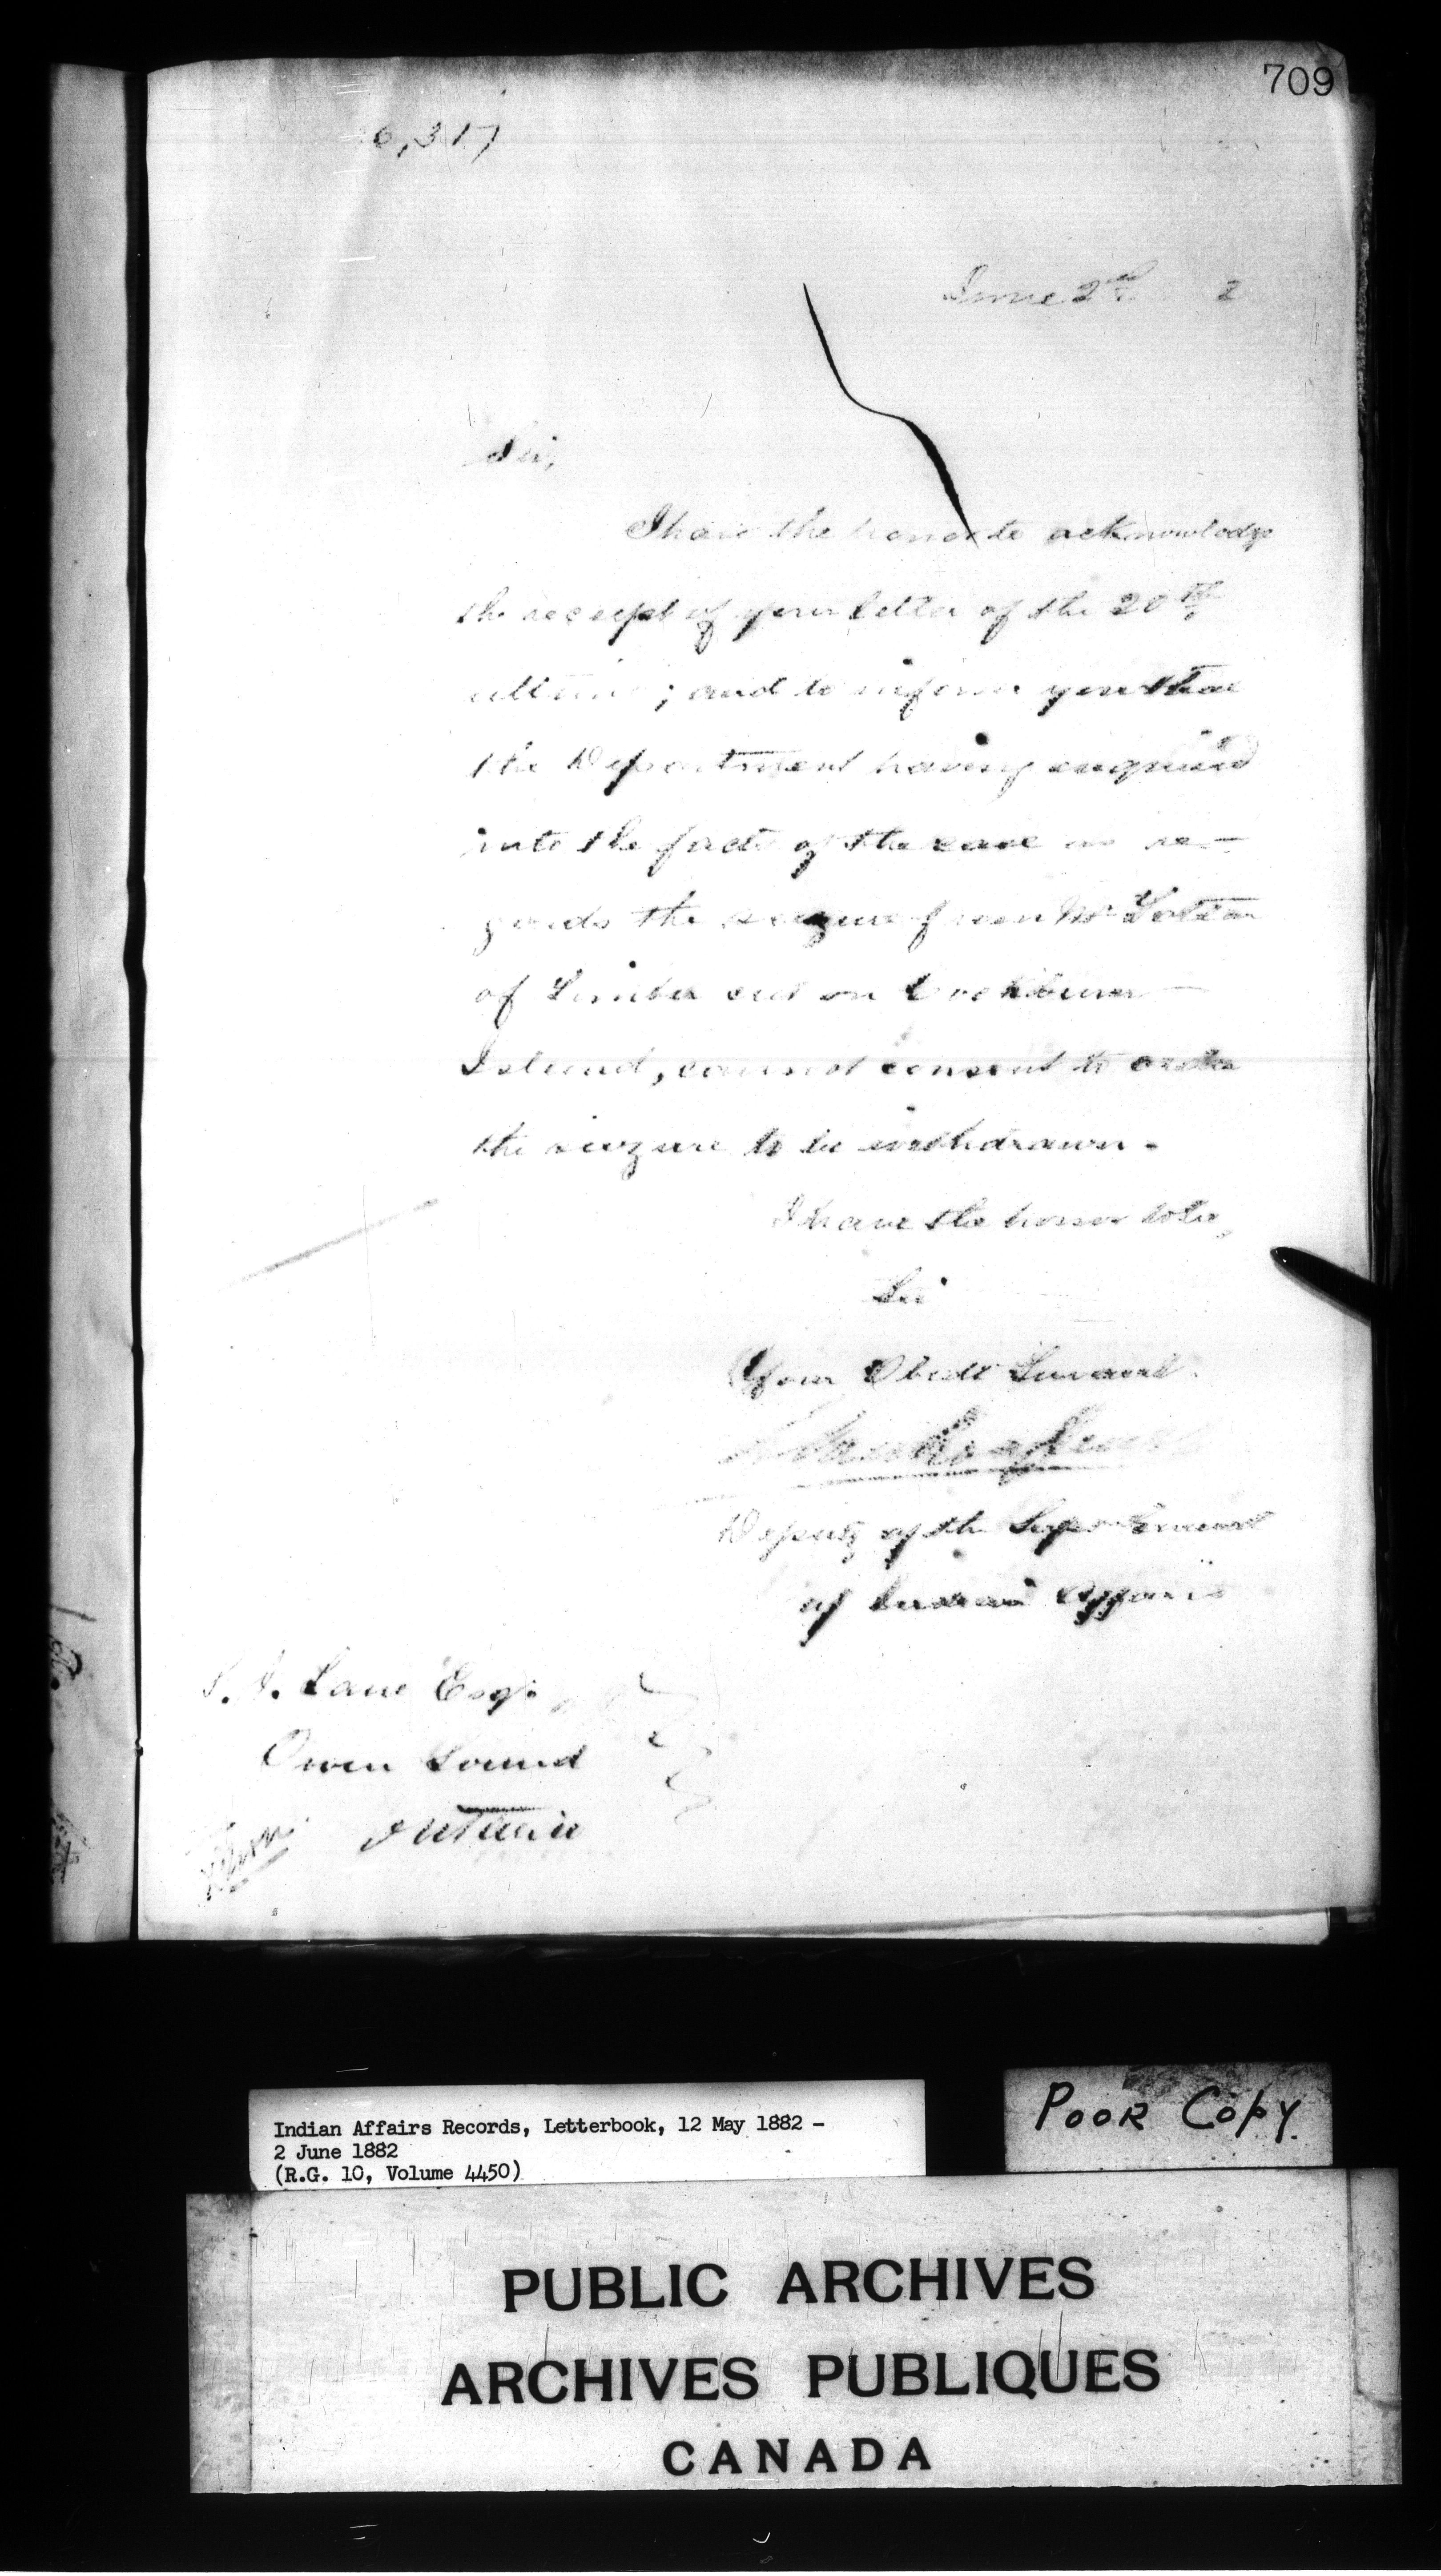 709
6,317
June 2nd 2
Sir,
I have the honor to acknowledge
the receipt of your letter of the 20th
ultimo; and to inform you that
the Department having enquired
into the facts of the case as re-
gards the seizure from Mr
of timber cut on Cockburn
Island, cannot consent to order
the seizure to be withdrawn.
I have the honor to be,
Sir
Your Obedt Servant.
Deputy of the Supt General
of Indian Affairs
Lane Esqr
Owen Sound
Ontario
Indian Affairs Records, Letterbook, 12 May 1882 -
2 June 1882
(R.G. 10, Volume 4450)
POOR COPY.
PUBLIC ARCHIVES
ARCHIVES PUBLIQUES
CANADA